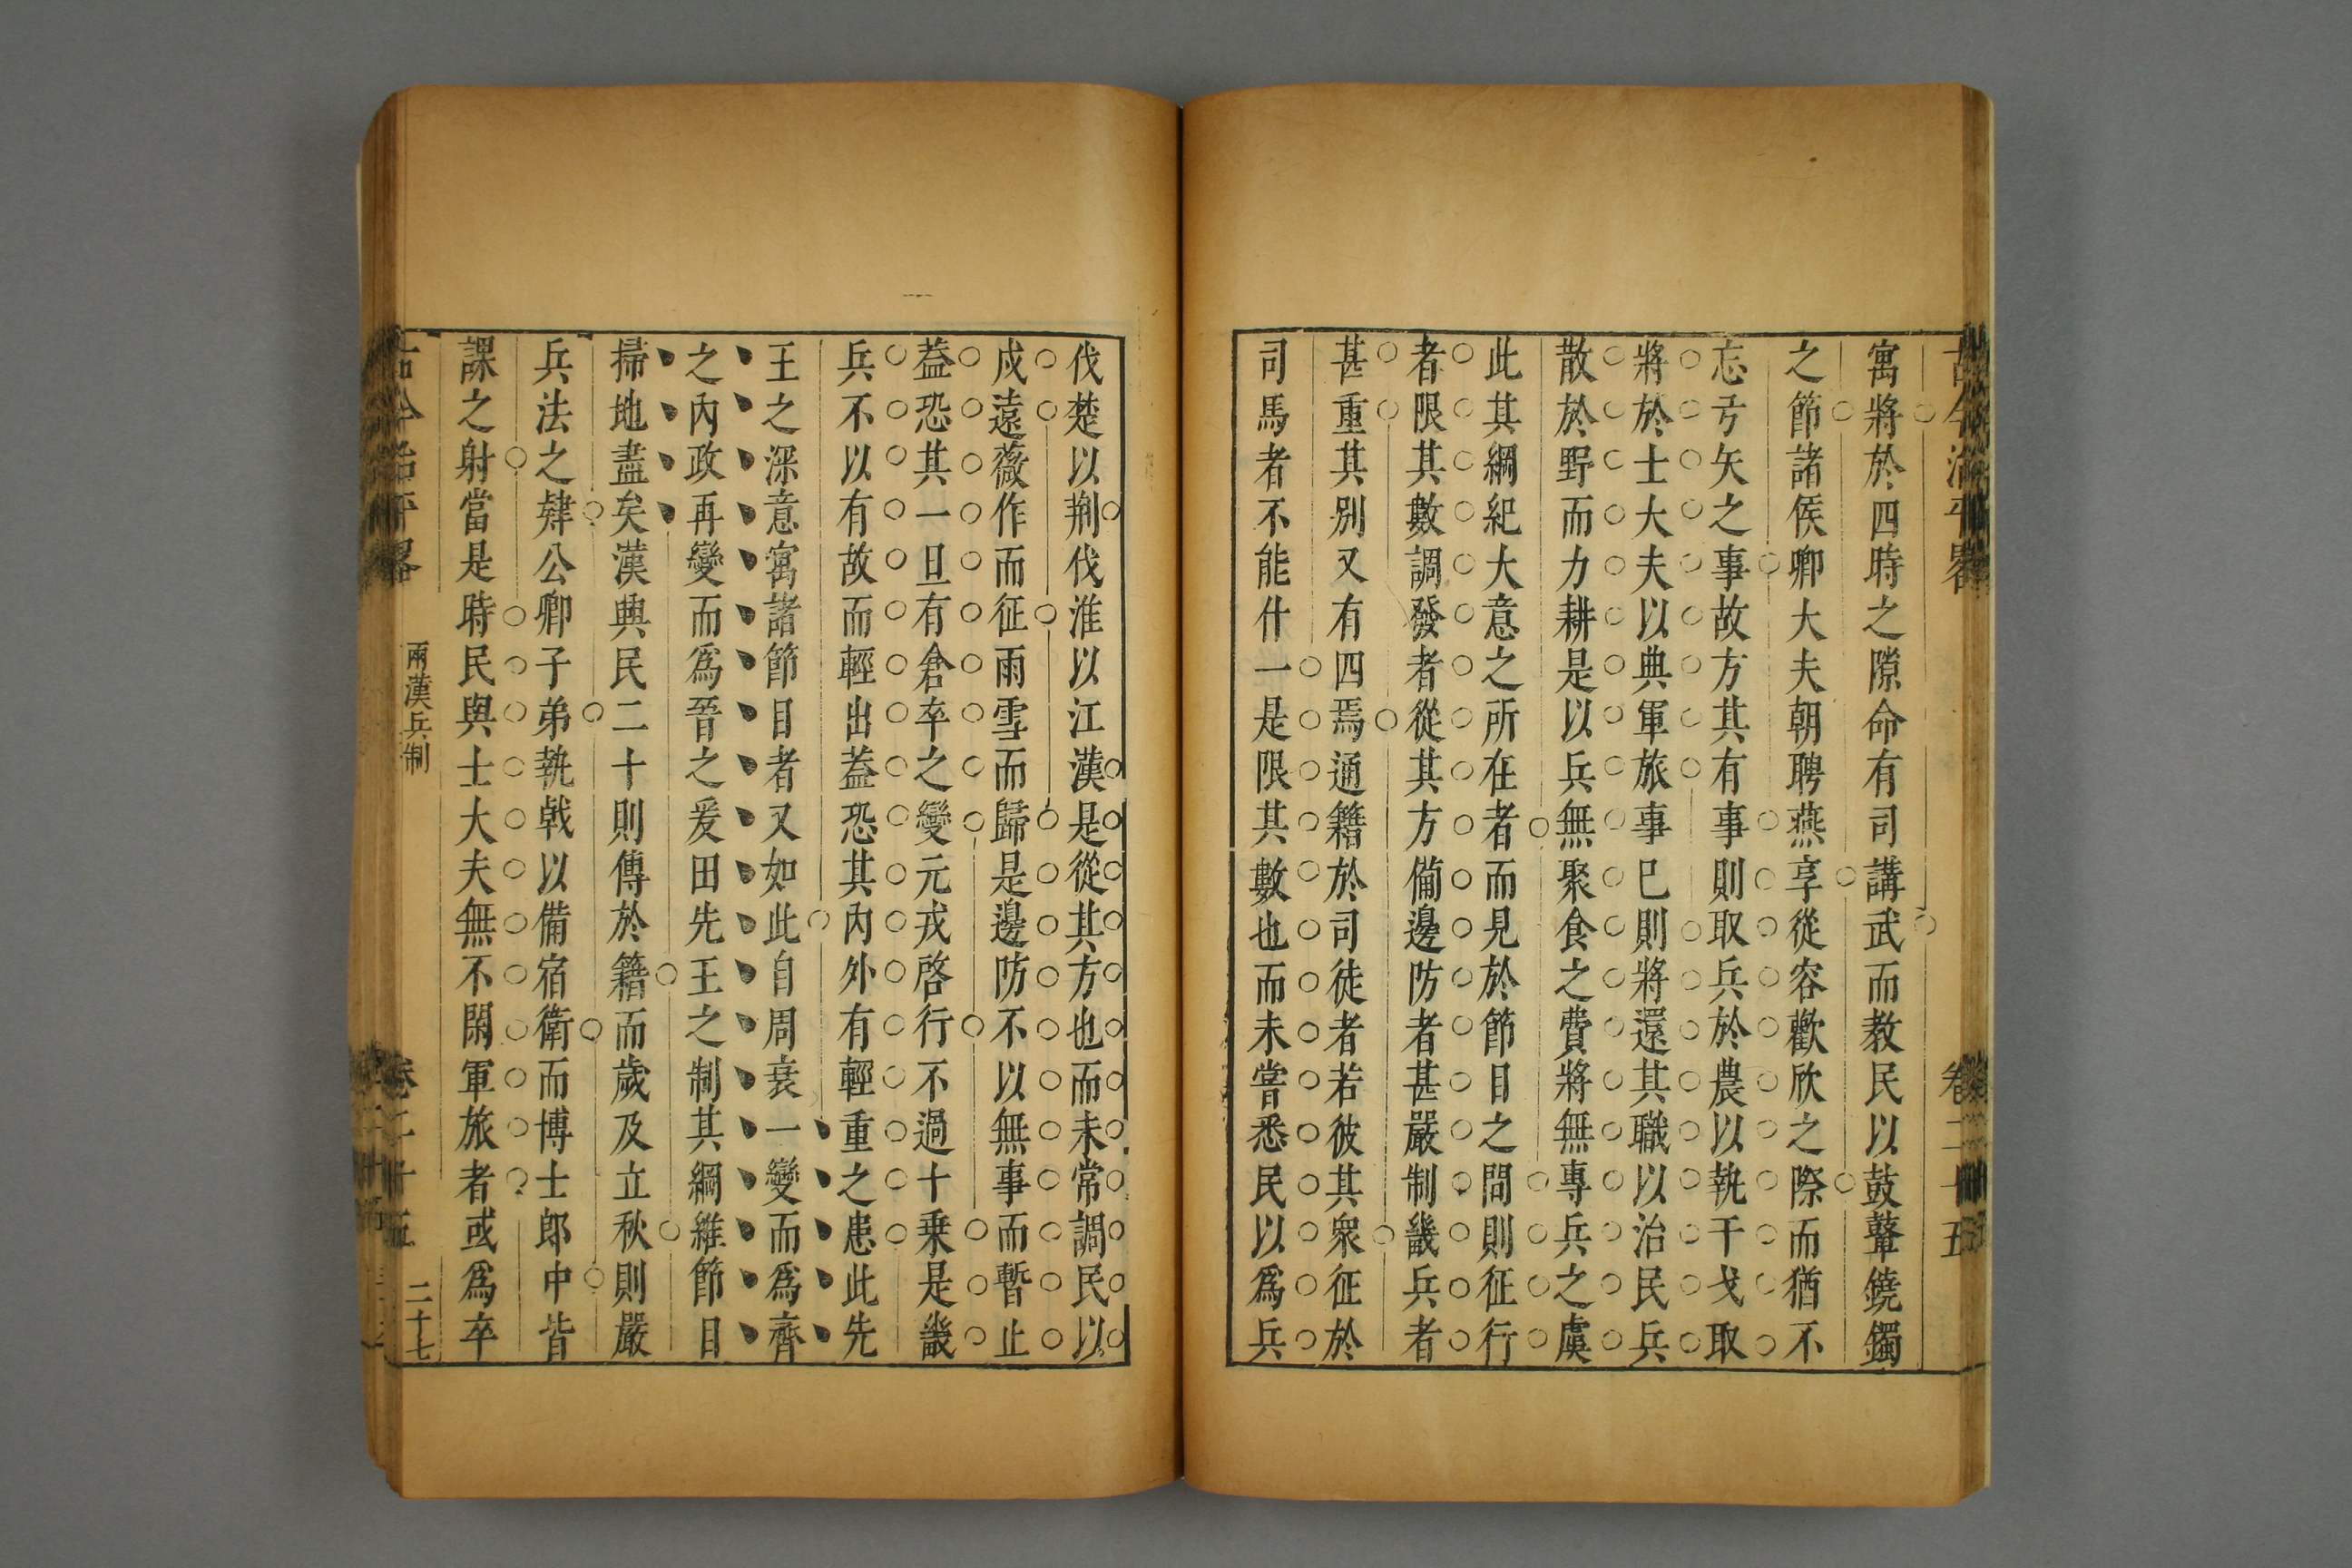 古今治平畧
卷二十五
寓將於四時之隙命有司講武而教民以鼓鼙鐃鐲
之節諸侯卿大夫朝聘燕享從容歡欣之際而猶不
忘弓矢之事故方其有事則取兵於農以執干戈取
將於士大夫以典軍旅事已則將還其職以治民兵
散於野而力耕是以兵無聚食之費將無專兵之虞
此其綱紀大意之所在者而見於節目之間則征行
者限其數調發者從其方備邊防者甚嚴制畿兵者
甚重其別又有四焉通籍於司徒者若彼其衆征於
司馬者不能什一是限其數也而未嘗悉民以爲兵
伐楚以荆伐淮以江漢是從其方也而未常調民以
戍遠薇作而征雨雪而歸是邊防不以無事而暫止
葢恐其一旦有倉卒之變元戎啓行不過十乗是畿
兵不以有故而輕出葢恐其内外有輕重之患此先
王之深意寓諸節目者又如此自周衰一變而爲齊
之内政再變而爲晉之爰田先王之制其綱維節目
掃地盡矣漢興民二十則傳於籍而歲及立秋則嚴
兵法之肄公卿子弟執戟以備宿衛而博士郎中皆
課之射當是時民與士大夫無不閑軍旅者或爲卒
古今治平畧
兩漢兵制
卷二十五
二十七